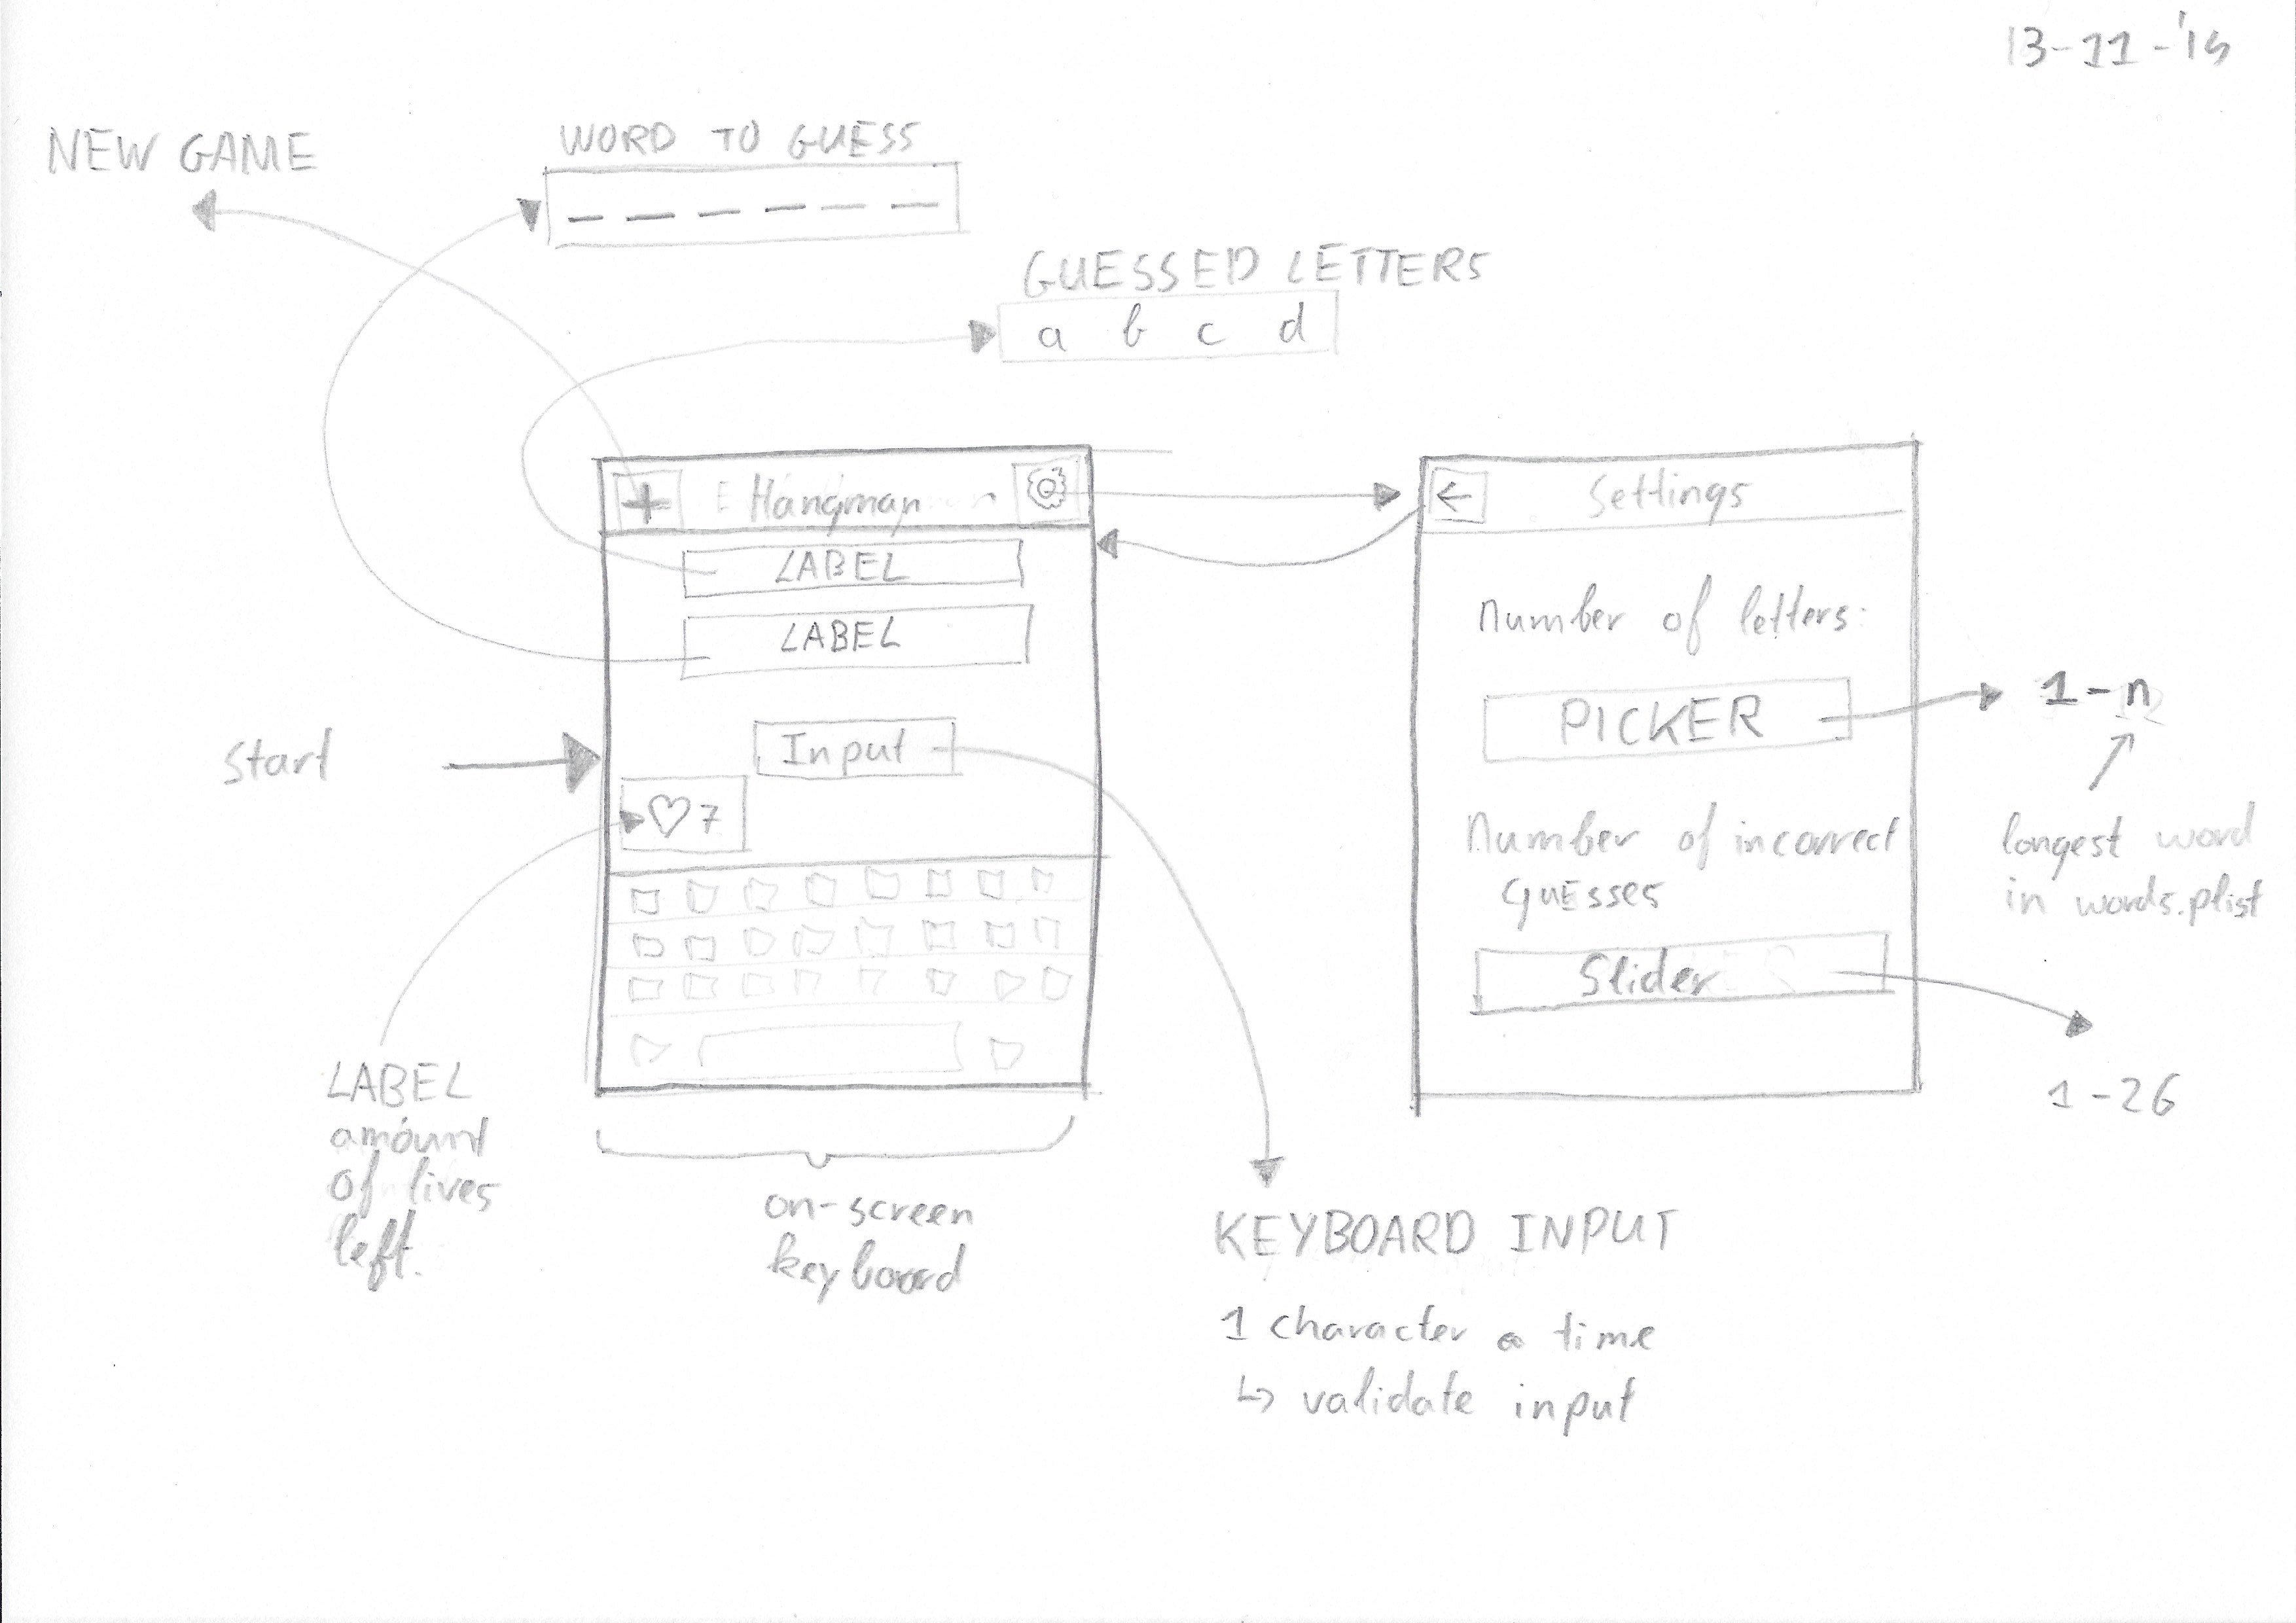 13-11-'15
NEW GAME
WORD TO GUESS
GUESSED LETTERS
a b c d
+ Hangman
LABEL
LABEL
Start
Input
7
LABEL
amount
of lives
left.
on-screen
keyboard
KEYBOARD INPUT
1 character a time
↳ validate input
← Settings
Number of letters:
PICKER
1-n
longest word
in words.plist
Number of incorrect
guesses
Slider
1-26